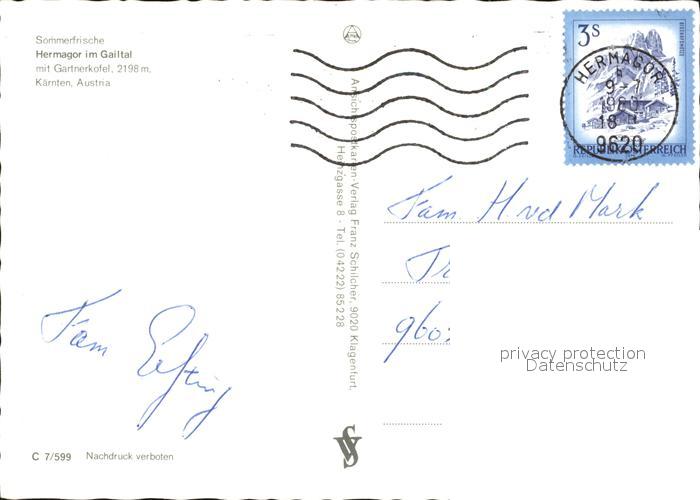 Sommerfrische
Hermagor im Gailtal
mit Gartnerkofel, 2198 m,
Kärnten, Austria
3s
HERMAGOR
18
9620
REPUBLIK ÖSTERREICH
Ansichtspostkarten-Verlag Franz Schilcher, 9020 Klagenfurt,
Henzgasse 8 - Tel. (04222) 85228
Fam H. vd Mark
Tr
960
privacy protection
Datenschutz
Fam
C 7/599 Nachdruck verboten